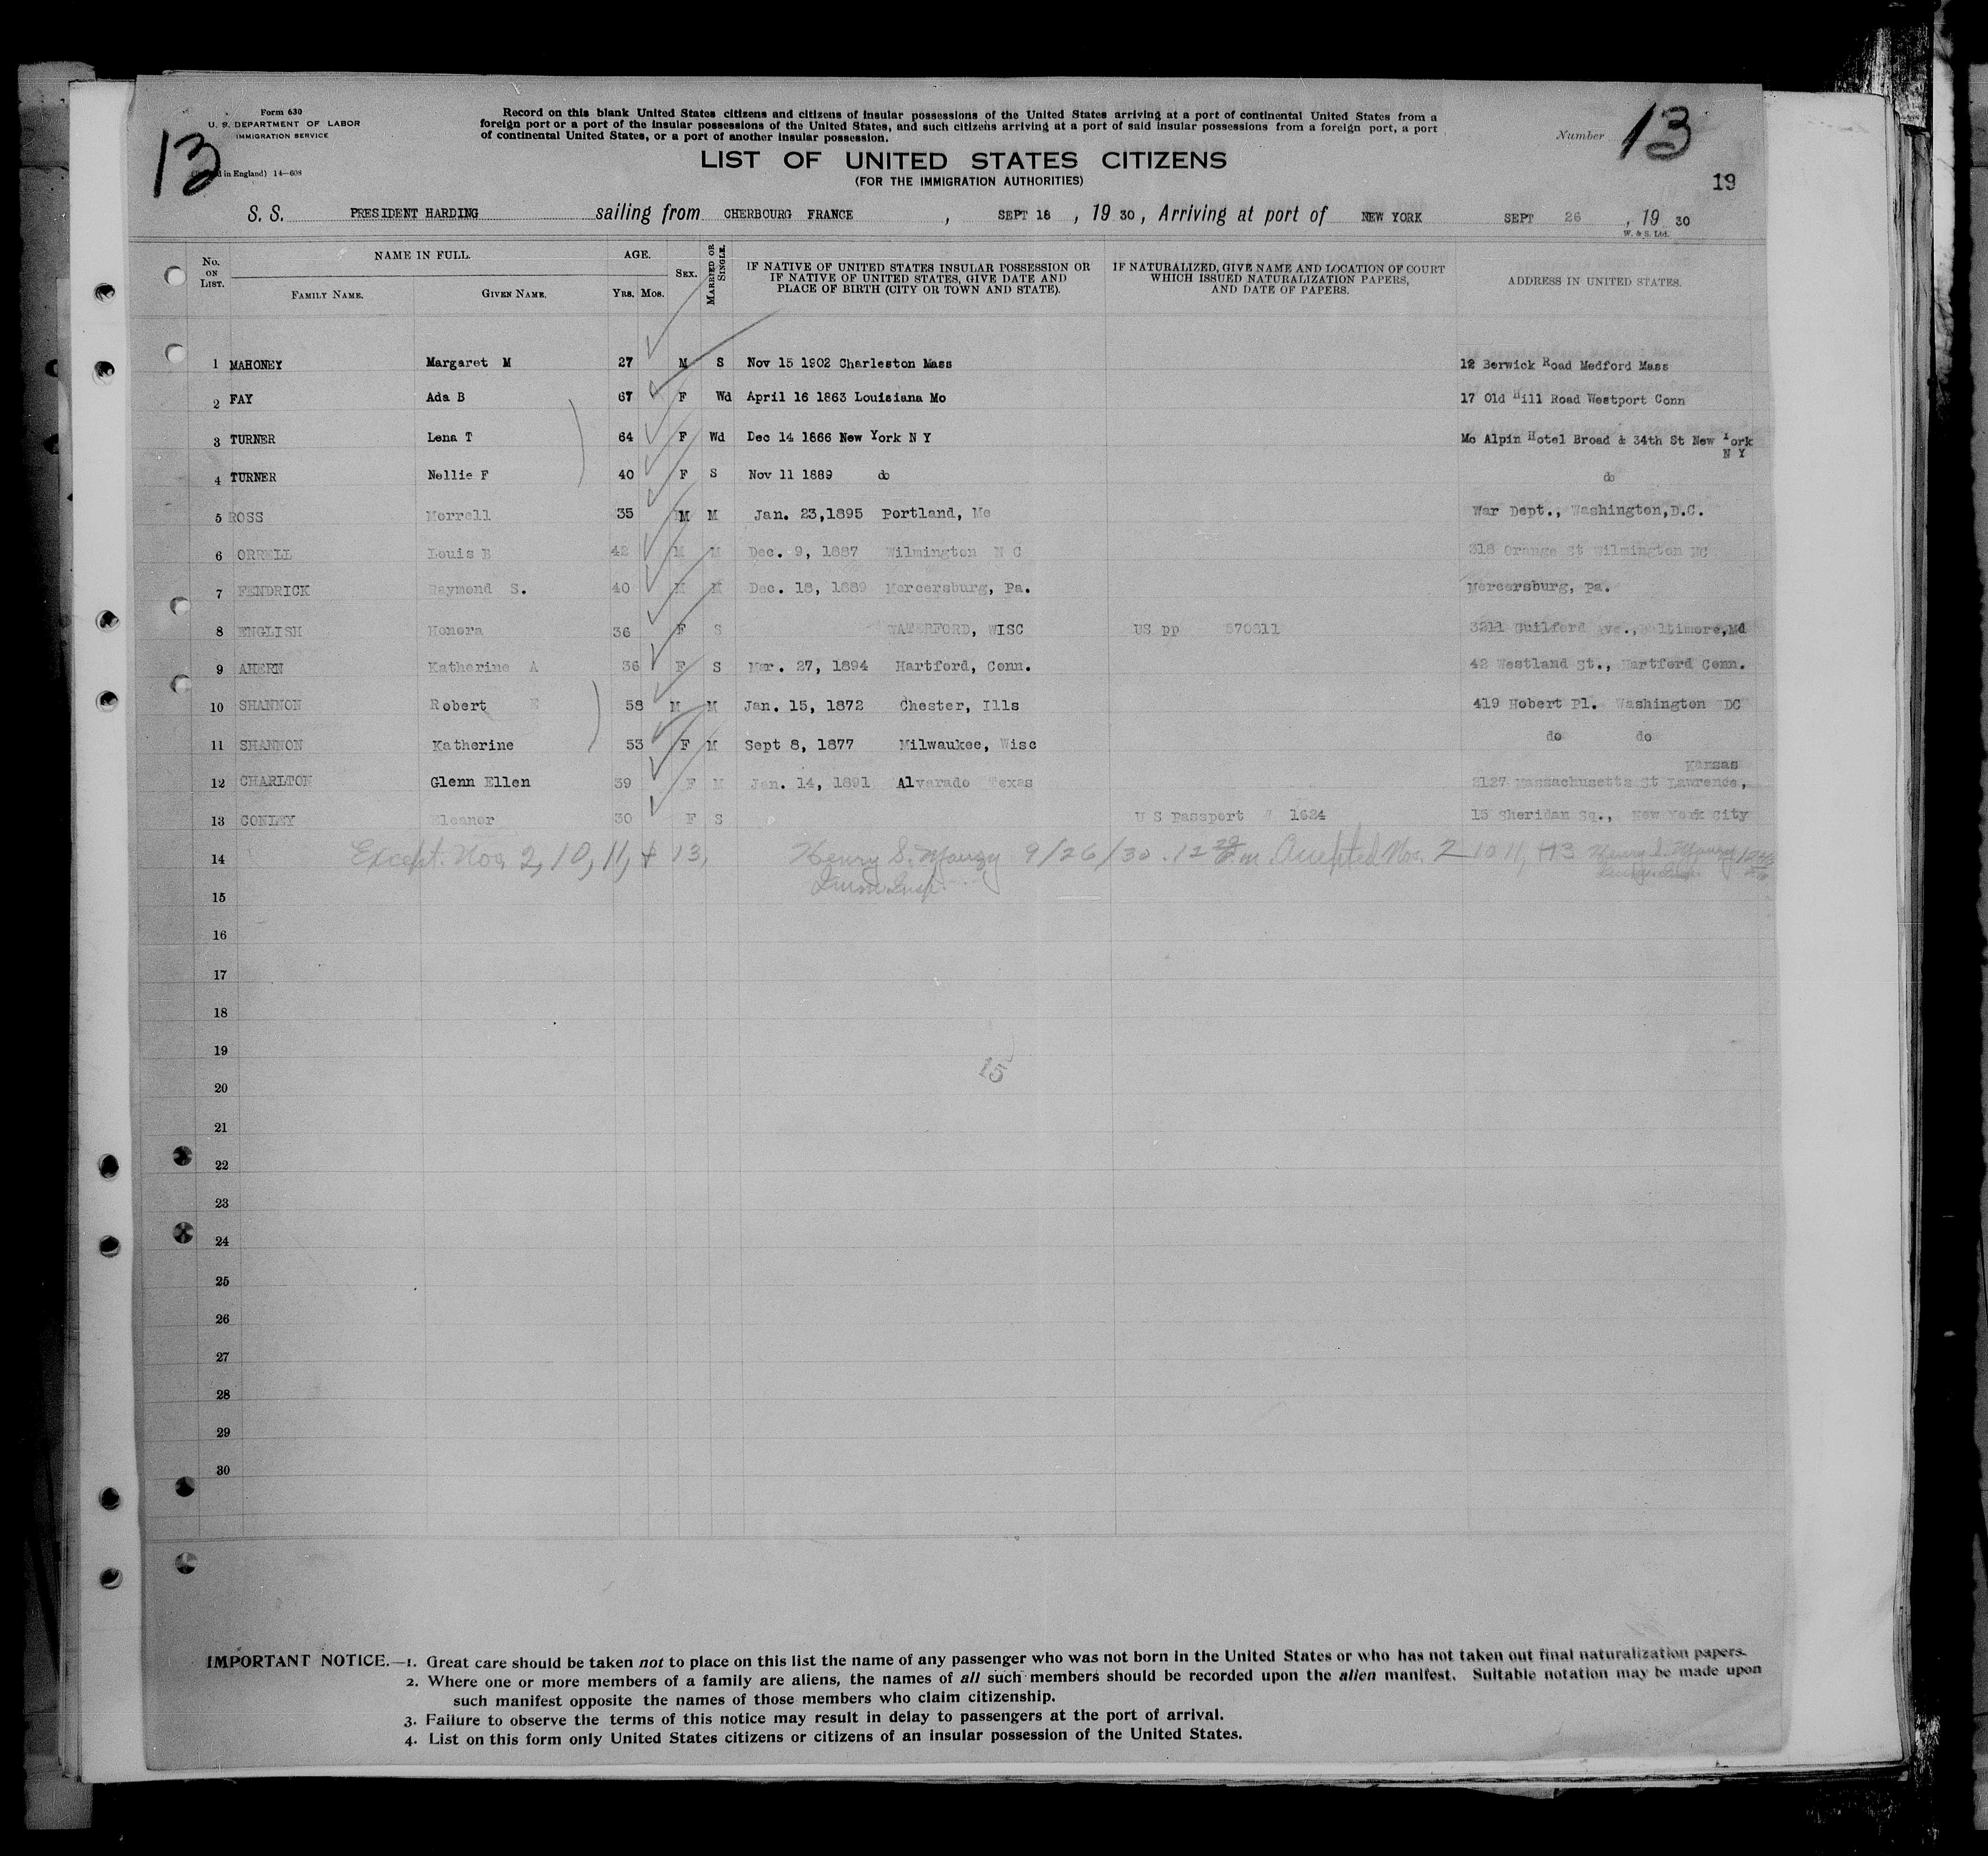 Form 630
U. S. DEPARTMENT OF LABOR
IMMIGRATION SERVICE
in England) 14—608
13
Record on this blank United States citizens and citizens of insular possessions of the United States arriving at a port of continental United States from a
foreign port or a port of the insular possessions of the United States, and such citizens arriving at a port of said insular possessions from a foreign port, a port
of continental United States, or a port of another insular possession.
Number 13
LIST OF UNITED STATES CITIZENS
(FOR THE IMMIGRATION AUTHORITIES)
19
S. S. PRESIDENT HARDING sailing from CHERBOURG FRANCE , SEPT 18 , 19 30 , Arriving at port of NEW YORK SEPT 26 , 19 30
W. & S. Ltd.
No. ON LIST. NAME IN FULL. FAMILY NAME. GIVEN NAME. AGE. Yrs. Mos. SEX. MARRIED OR SINGLE. IF NATIVE OF UNITED STATES INSULAR POSSESSION OR IF NATIVE OF UNITED STATES, GIVE DATE AND PLACE OF BIRTH (CITY OR TOWN AND STATE). IF NATURALIZED, GIVE NAME AND LOCATION OF COURT WHICH ISSUED NATURALIZATION PAPERS, AND DATE OF PAPERS. ADDRESS IN UNITED STATES.
1 MAHONEY Margaret M 27 M S Nov 15 1902 Charleston Mass 12 Berwick Road Medford Mass
2 FAY Ada B 67 F Wd April 16 1863 Louisiana Mo 17 Old Hill Road Westport Conn
3 TURNER Lena T 64 F Wd Dec 14 1866 New York N Y Mc Alpin Hotel Broad & 34th St New York N Y
4 TURNER Nellie F 40 F S Nov 11 1889 do do
5 ROSS Morrell 35 M M Jan. 23,1895 Portland, Me War Dept., Washington,D.C.
6 ORRELL Louis 42 M M Dec. 9, 1887 Wilmington N C 318 Orange St Wilmington NC
7 FENDRICK Raymond S. 40 M M Dec. 18, 1889 Mercersburg, Pa. Mercersburg, Pa.
8 ENGLISH Honora 36 F S WATERFORD, WISC US pp 570811 3211 Guilford Ave., Baltimore,Md
9 AHERN Katherine A 36 F S Mar. 27, 1894 Hartford, Conn. 42 Westland St., Hartford Conn.
10 SHANNON Robert E 58 M M Jan. 15, 1872 Chester, Ills 419 Hobert Pl. Washington DC
11 SHANNON Katherine 53 F M Sept 8, 1877 Milwaukee, Wisc do do
12 CHARLTON Glenn Ellen 39 F M Jan. 14, 1891 Alvarado Texas 2127 Massachusetts St Lawrence, Kansas
13 CONLEY Eleanor 30 F S U S Passport # 1624 15 Sheridan Sq., New York City
14 Except. Nos. 2, 10, 11, & 13, Henry S. 9/26/30 . 12 Accepted Nos. 2 10 11, +13 Henry S.
15
16
17
18
19
15
20
21
22
23
24
25
26
27
28
29
30
IMPORTANT NOTICE.—1. Great care should be taken not to place on this list the name of any passenger who was not born in the United States or who has not taken out final naturalization papers.
2. Where one or more members of a family are aliens, the names of all such members should be recorded upon the alien manifest. Suitable notation may be made upon
such manifest opposite the names of those members who claim citizenship.
3. Failure to observe the terms of this notice may result in delay to passengers at the port of arrival.
4. List on this form only United States citizens or citizens of an insular possession of the United States.